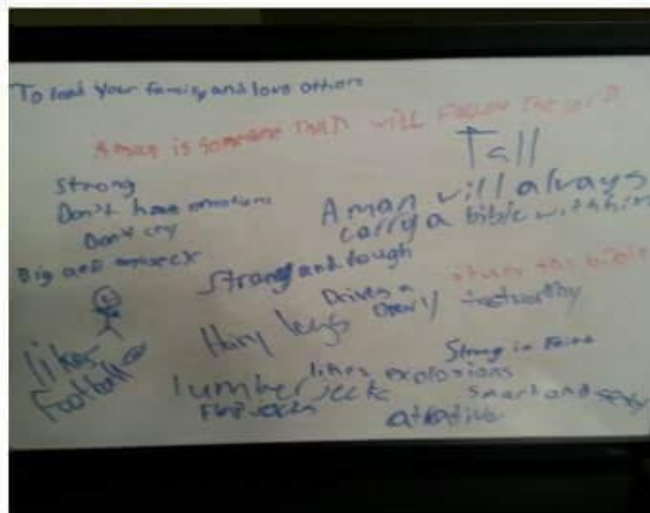 To lead your family and love others
A man is someone that will Follow the lord
Tall
Strong
Don't have emotions
Don't cry
A man will always
carry a bible with him
Big and
Strong and tough
the bible
Drives a
Chevy
trustworthy
Hary legs
likes
Football
Strong in Faith
likes explosions
lumber jack
Flap jacks
Smart and sexy
atrative